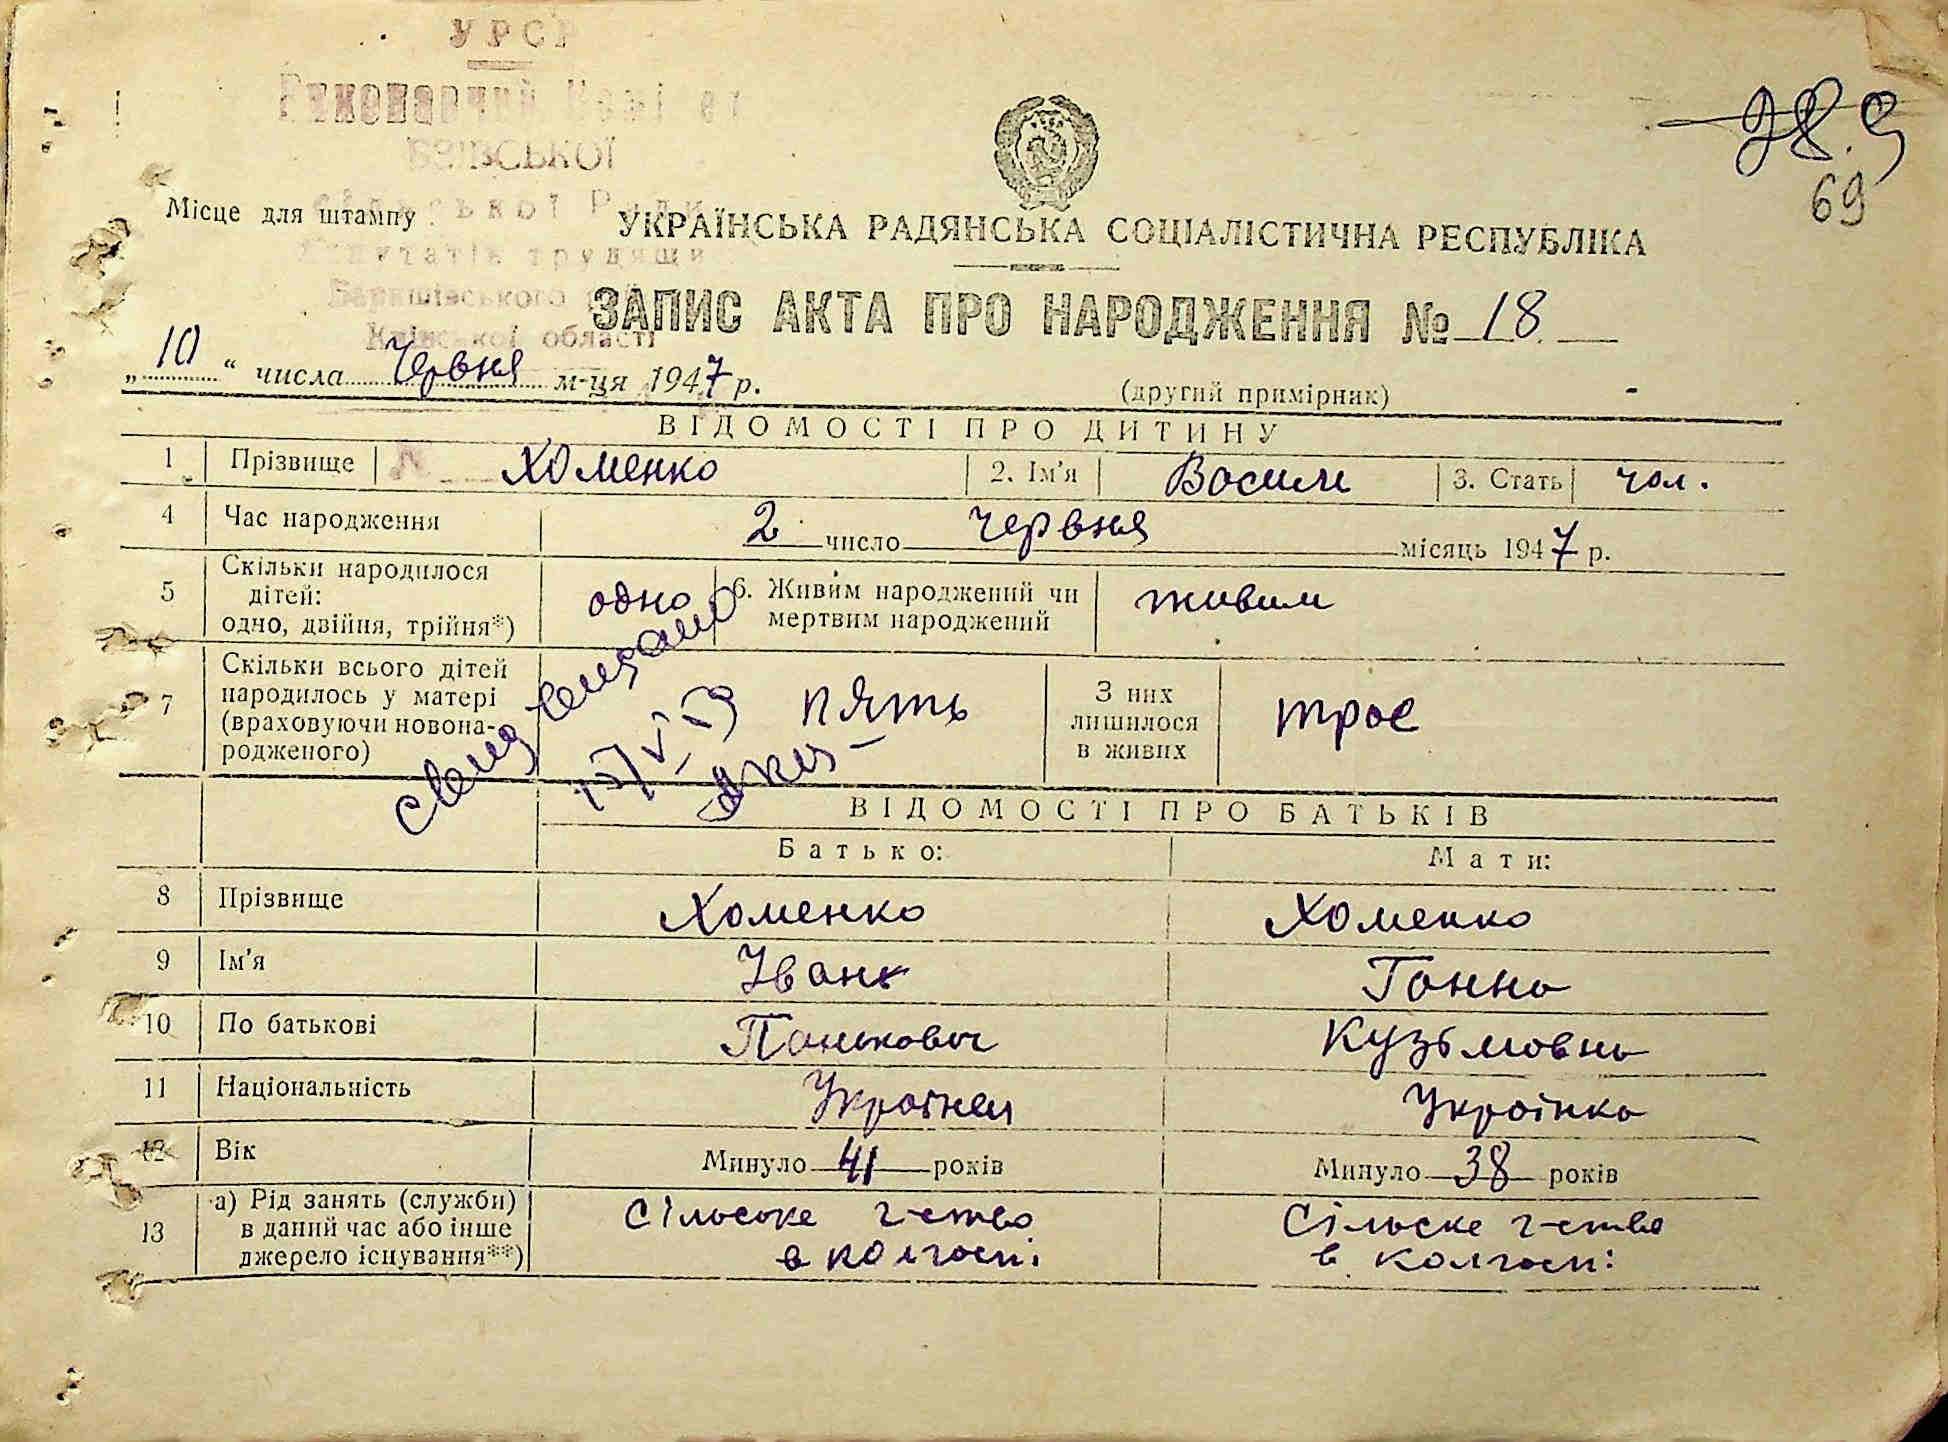 УРСР
Виконавчий Комітет
БЗІВСЬКОЇ
сільської Ради
депутатів трудящих
Баришівського
Київської області
28.9
69
Місце для штампу
УКРАЇНСЬКА РАДЯНСЬКА СОЦІАЛІСТИЧНА РЕСПУБЛІКА
ЗАПИС АКТА ПРО НАРОДЖЕННЯ № 18
„10“ числа Червня м-ця 1947 р.
(другий примірник)
ВІДОМОСТІ ПРО ДИТИНУ
1 Прізвище Хоменко 2. Ім'я Василь 3. Стать чол.
4 Час народження 2 число червня місяць 1947 р.
5 Скільки народилося дітей: одно, двійня, трійня*) одно 6. Живим народжений чи мертвим народжений живим
7 Скільки всього дітей народилось у матері (враховуючи новонародженого) пять З них лишилося в живих троє
ВІДОМОСТІ ПРО БАТЬКІВ
Батько: Мати:
8 Прізвище Хоменко Хоменко
9 Ім'я Іван Ганна
10 По батькові Панькович Кузьмовна
11 Національність Українец Українка
12 Вік Минуло 41 років Минуло 38 років
13 а) Рід занять (служби) в даний час або інше джерело існування**) Сільське г-ство в колгоспі Сільске г-ство в колгоспі